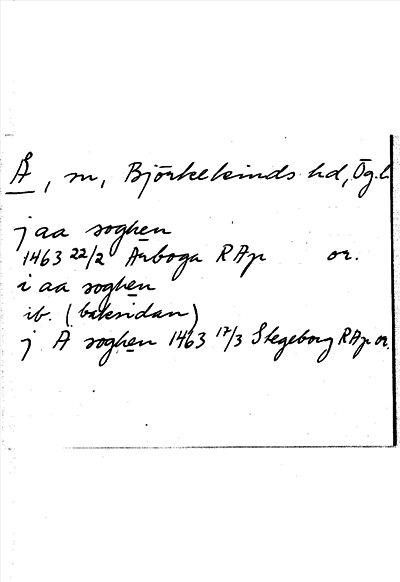 Å, sn, Björkekinds hd, Ög.l
j aa soghen
1463 22/2 Arboga RAp or.
i aa soghen
ib. (baksidan)
j A soghen 1463 17/3 Stegeborg RAp or.